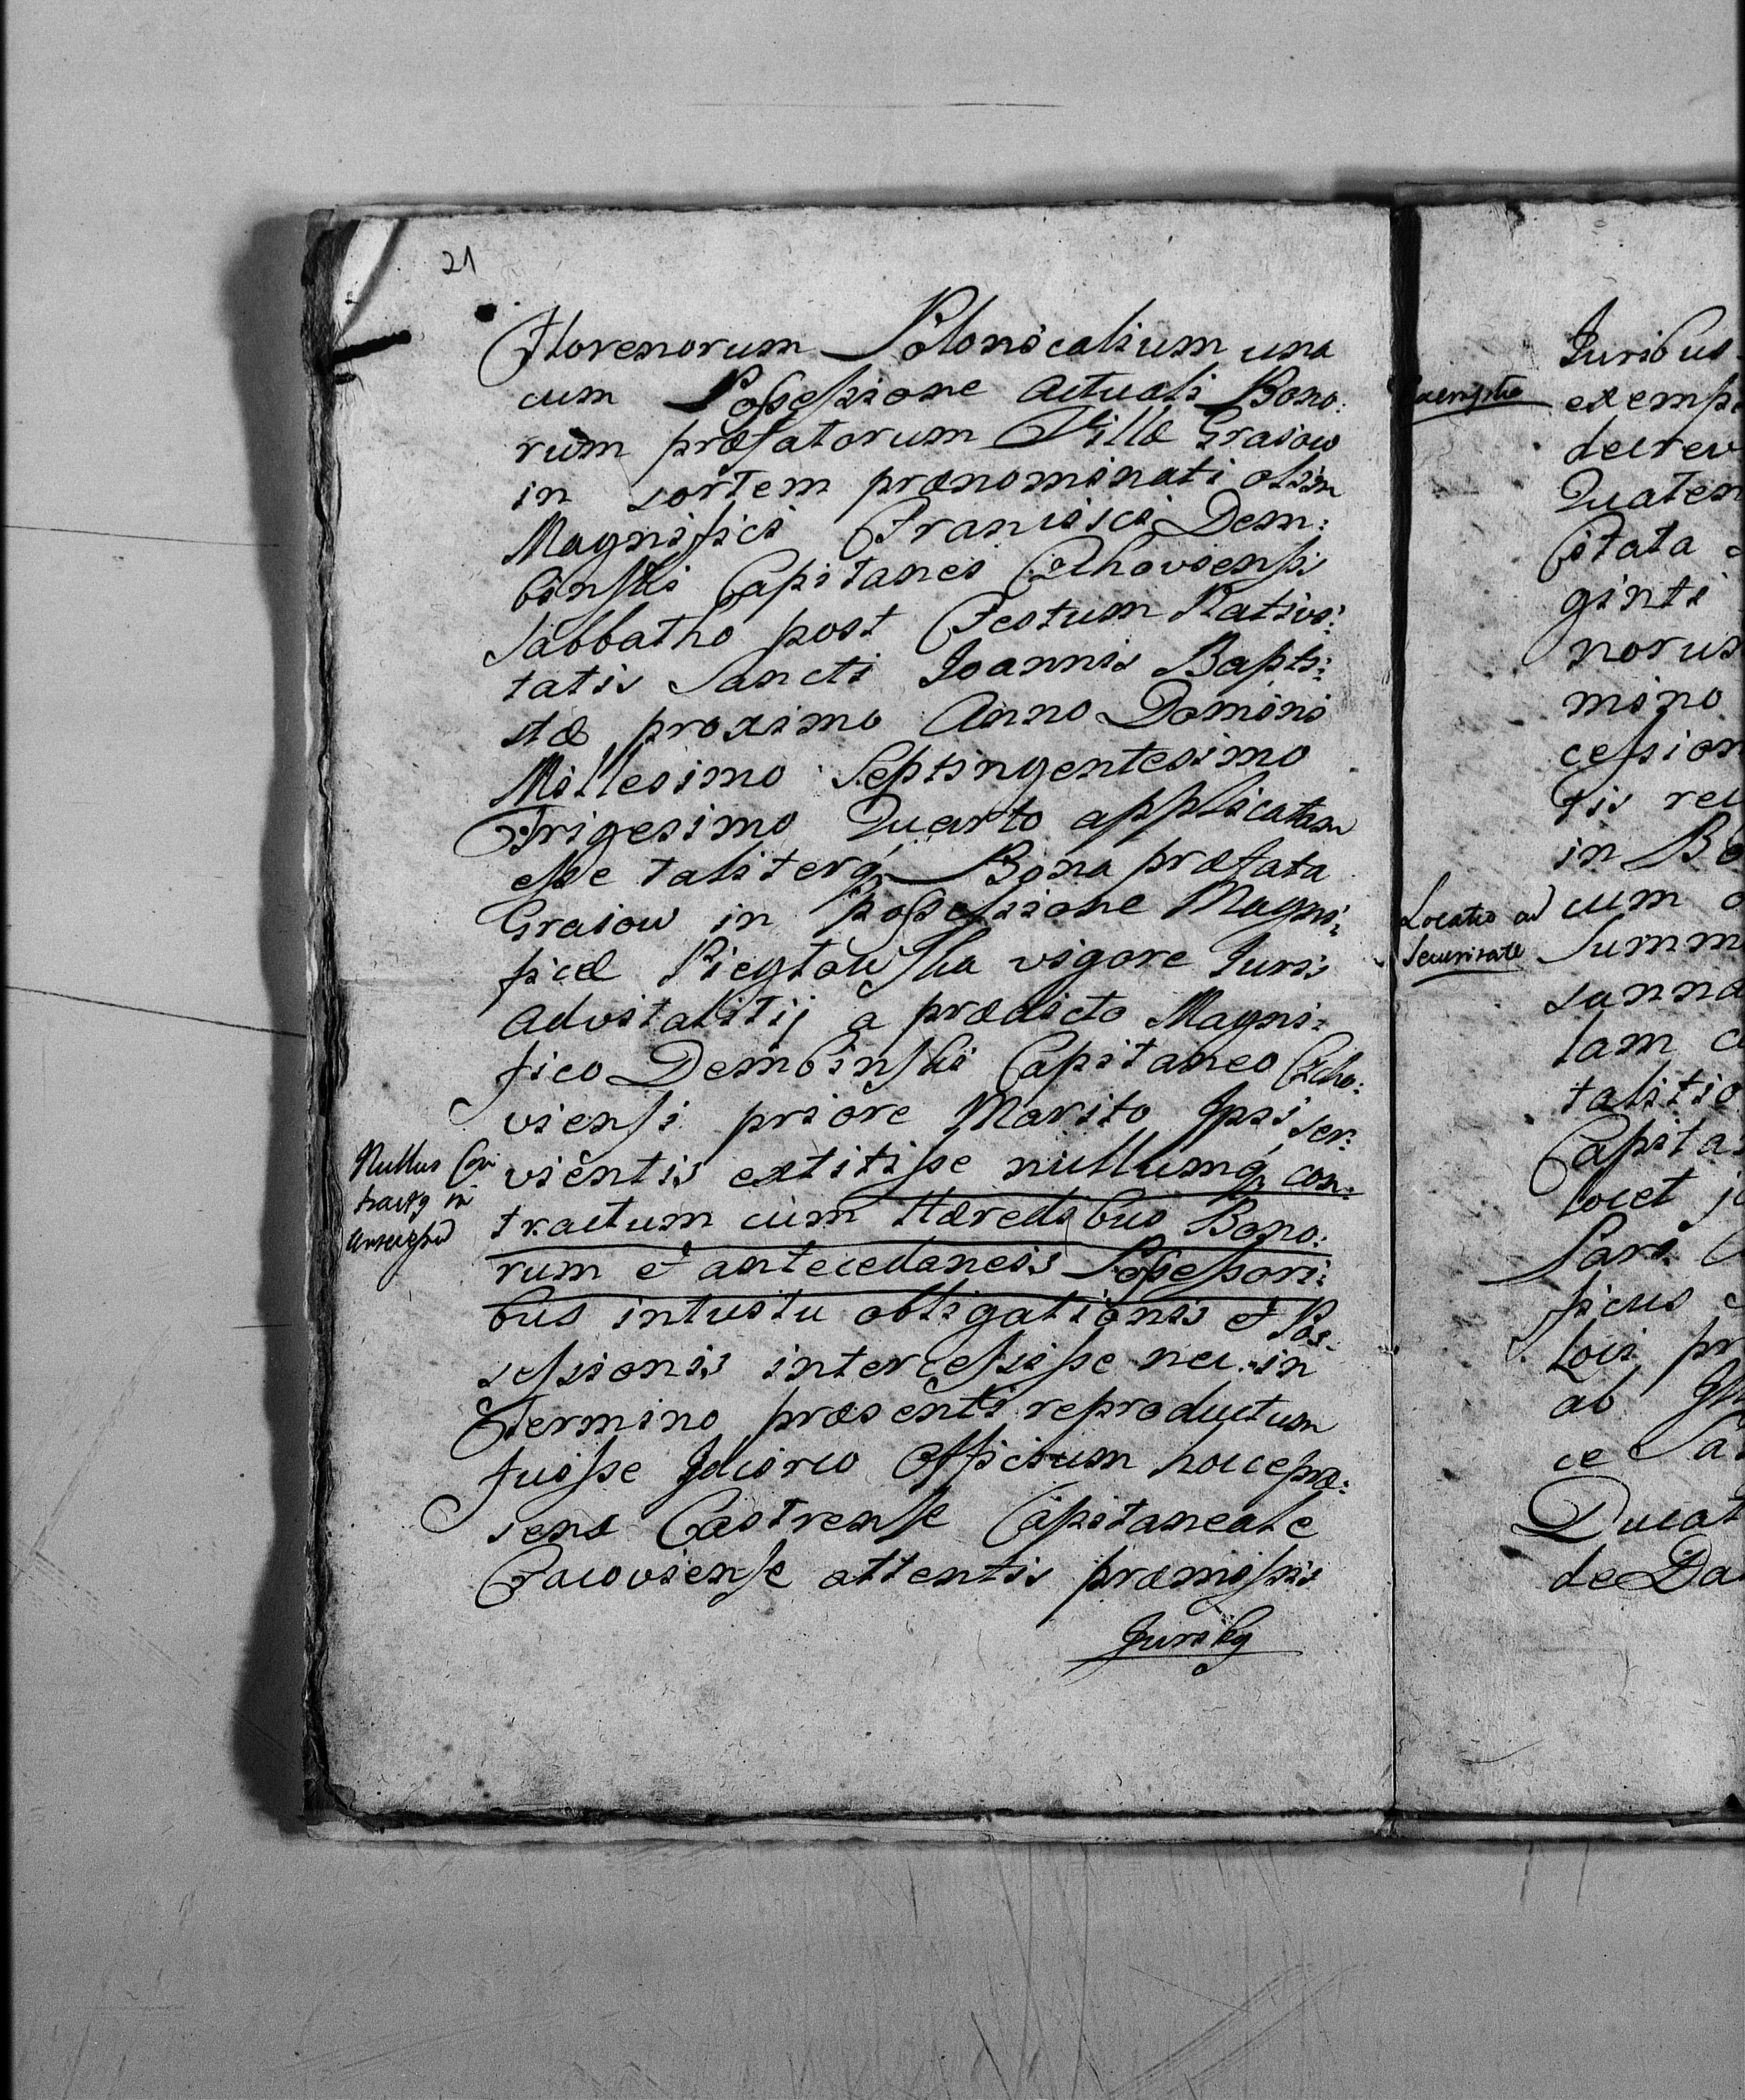 21
Florenorum Polonicalium una
cum Possessione actuali Bono:
rum præfatorum Villæ Graiow
in sortem prænominati olim
Magnifici Francisci Dem:
binski Capitanei Zchoviensis
Sabbatho post Festum Nativi:
tatis Sancti Joannis Bapti:
stæ proximo Anno Domini
Millesimo Septingentesimo
Trigesimo Quarto applicatam
esse taliterq Bona præfata
Graiow in possessione Magni:
ficæ Piegłowska vigore Juris
advitalitij a prædicto Magni:
fico Dembinski Capitaneo Zcho:
viensi priore Marito Ipsi ser:
vientis extitisse nullumq con:
tractum cum Hæredibus Bono:
rum et antecedaneis Possessori:
bus intuitu obligationis et Pos:
sessionis intercessisse nec in
Termino præsenti reproductum
fuisse Idcirco Officium hocce præ:
sens Castrense Capitaneale
Cracoviense attentis præmissis
Juribg
Nullus Con
tractg
Juribus
exemp
decrev
Quaten
Citata
ginti
norum
mino
cession
tis rec
in Bo
Locatio ad
Securitate
cum
Summ
sanna
lam
talitio
Capita
locet
Pari
ficus
pr
ab
ce
Ducat
de Da